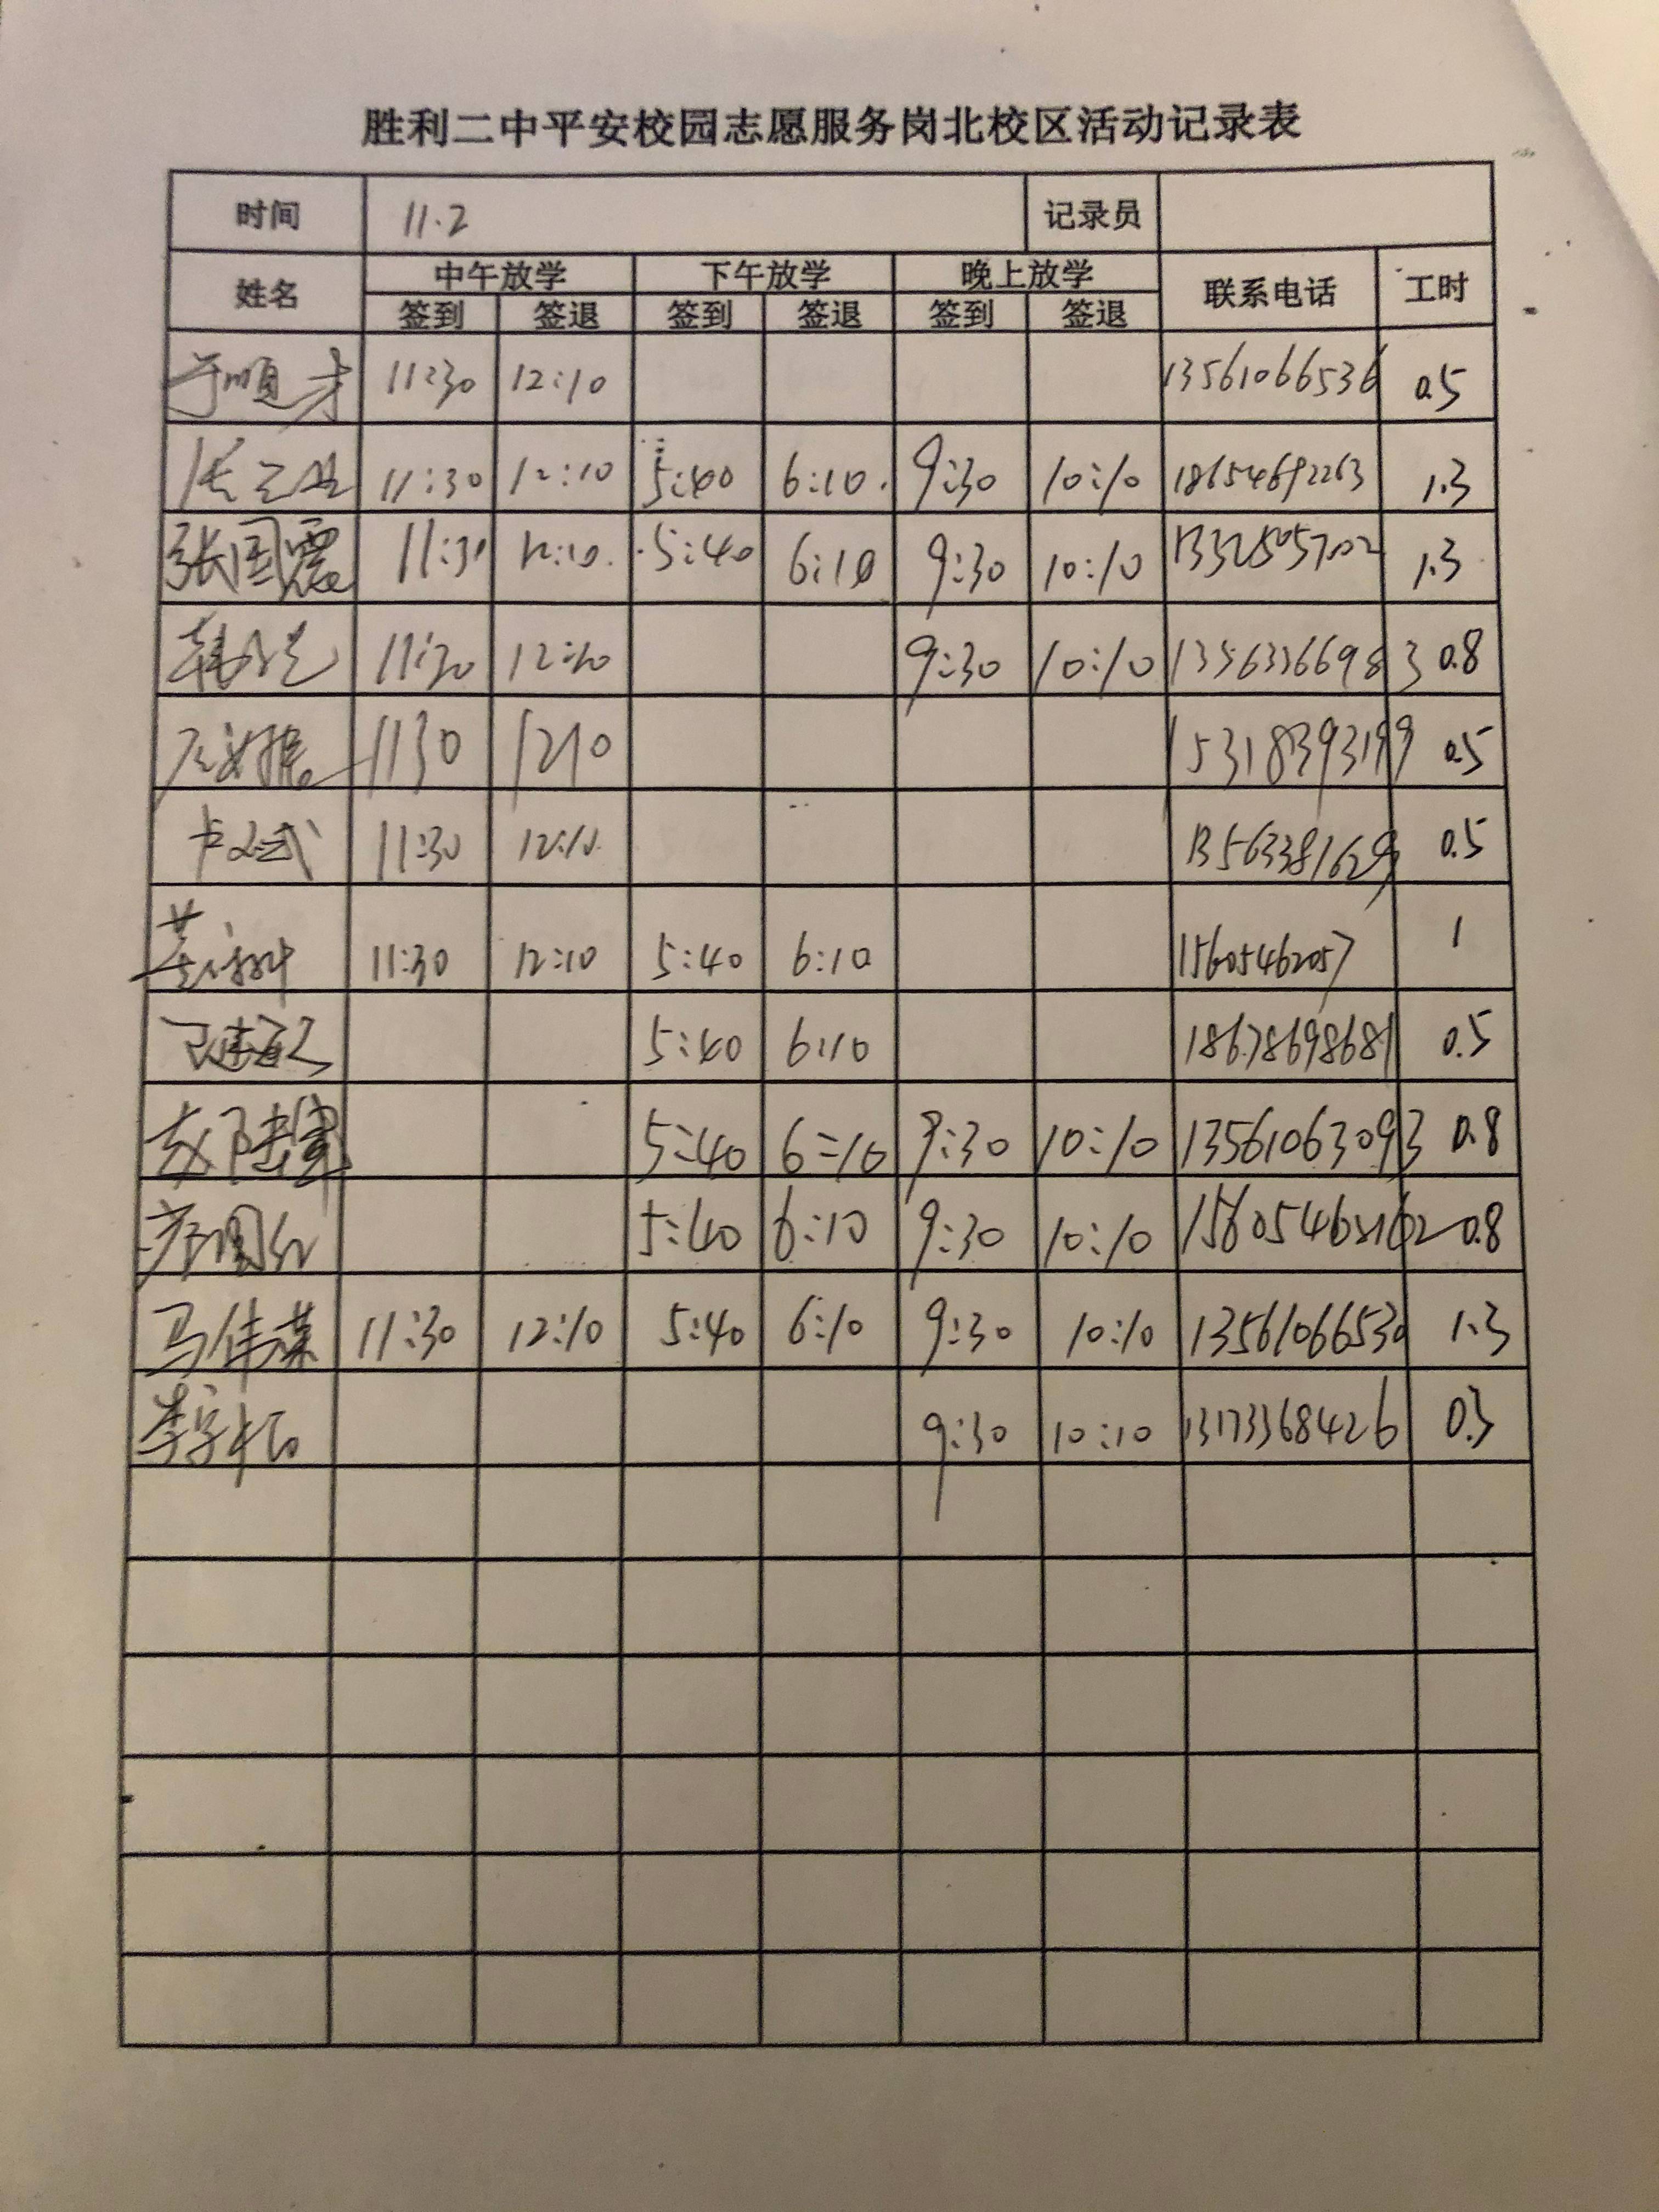 胜利二中平安校园志愿服务岗北校区活动记录表
时间 11.2 记录员
姓名 中午放学 下午放学 晚上放学 联系电话 工时
签到 签退 签到 签退 签到 签退
于顺才 11:30 12:10 13561066536 0.5
11:30 12:10 5:40 6:10 9:30 10:10 18654692263 1.3
张国震 11:30 12:10 5:40 6:10 9:30 10:10 1.3
11:30 12:10 9:30 10:10 0.8
1130 1210 15318393199 0.5
11:30 12:10 13563381629 0.5
11:30 12:10 5:40 6:10 15605462057 1
5:40 6:10 18678698681 0.5
5:40 6:10 9:30 10:10 13561063093 0.8
5:40 6:10 9:30 10:10 0.8
马伟谋 11:30 12:10 5:40 6:10 9:30 10:10 13561066530 1.3
9:30 10:10 13173368426 0.3